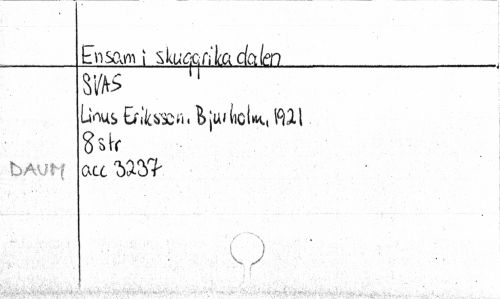 Ensam i skuggrika dalen
SVAS
Linus Eriksson, Bjurholm, 1921
8 str
DAUM acc 3237